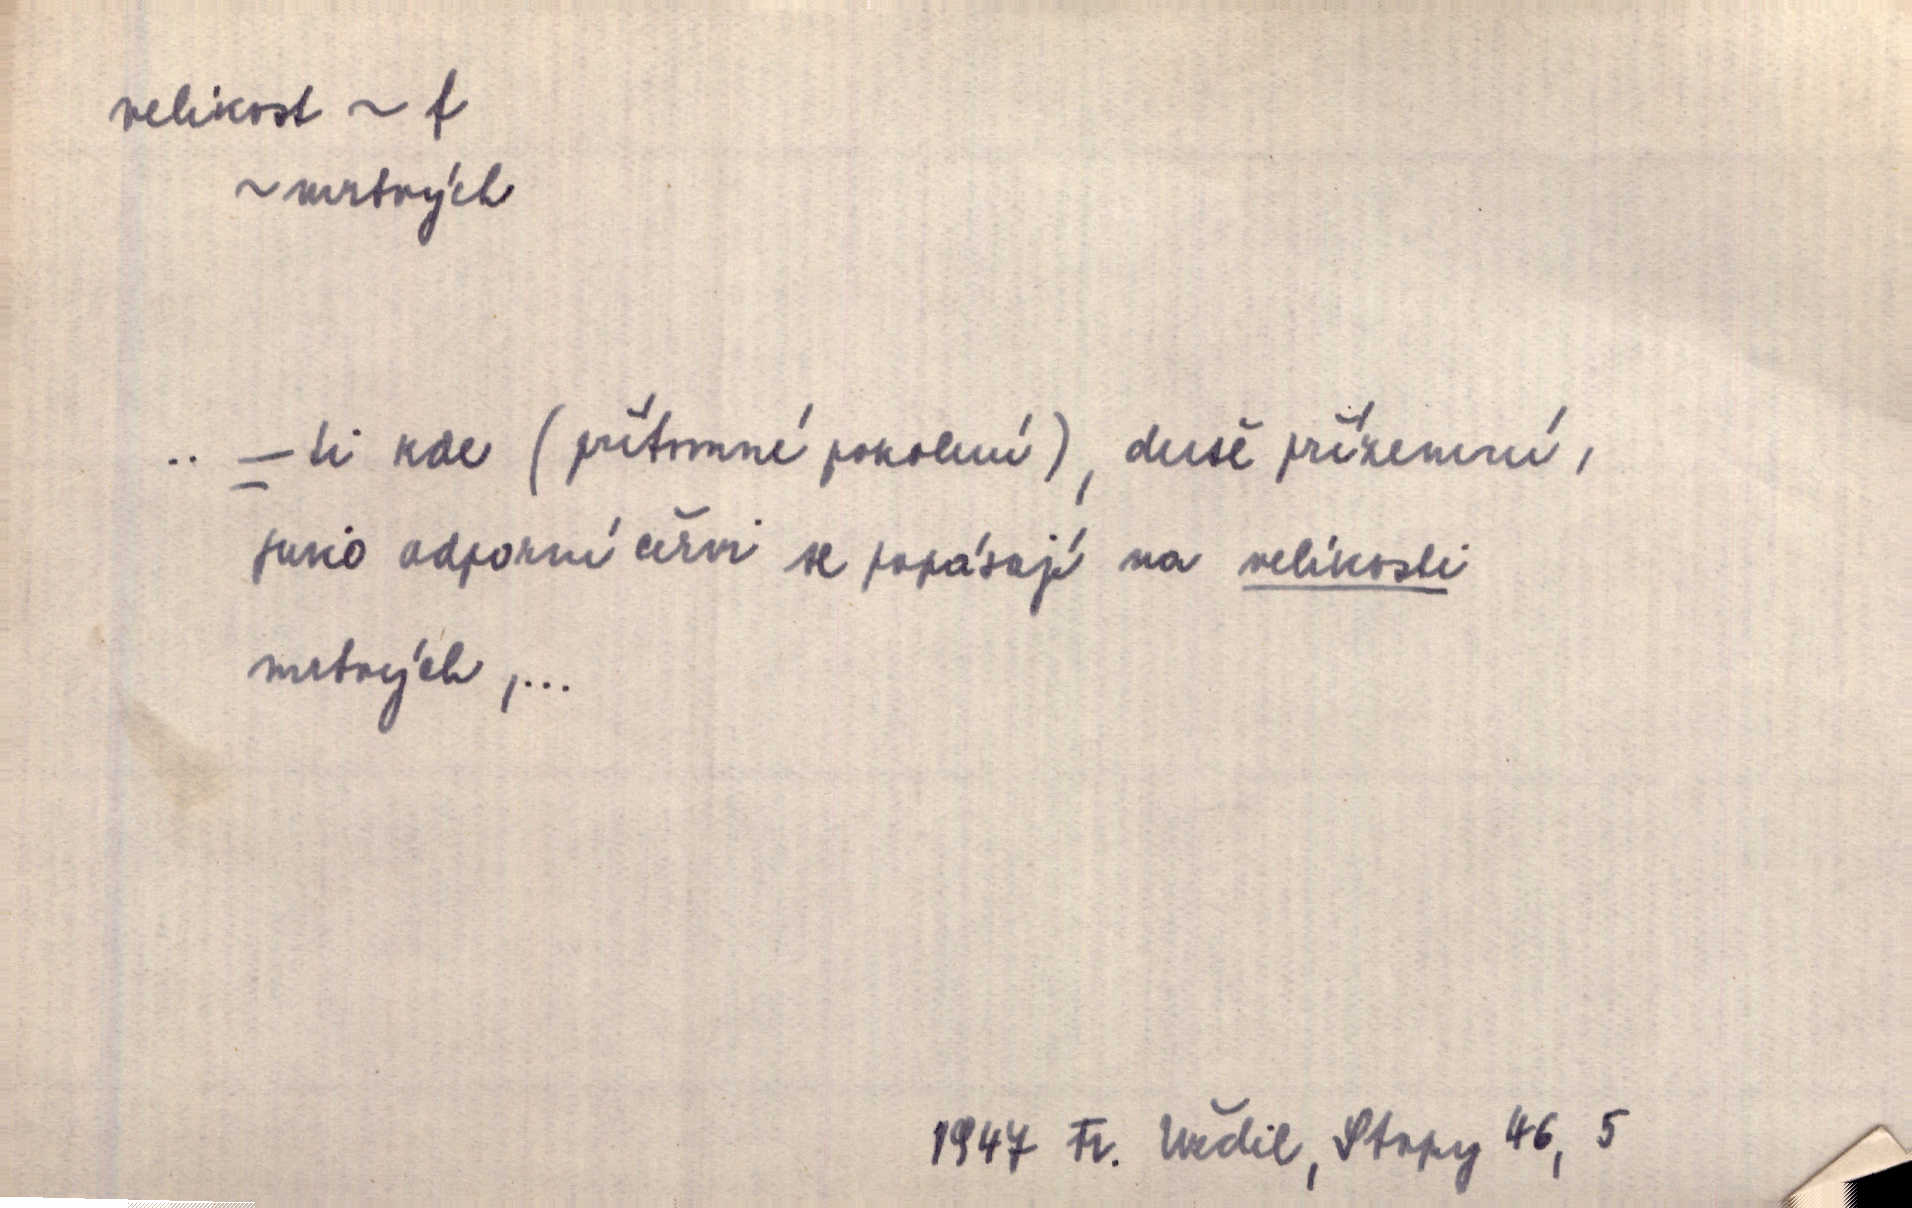 velikost ~ f
~ mrtvých
.. — ti kde (přítomné pokolení), duše přízemní,
jako odporní červi se popásají na velikosti
mrtvých,...
1947 Fr. Uždil, Stopy 46, 5